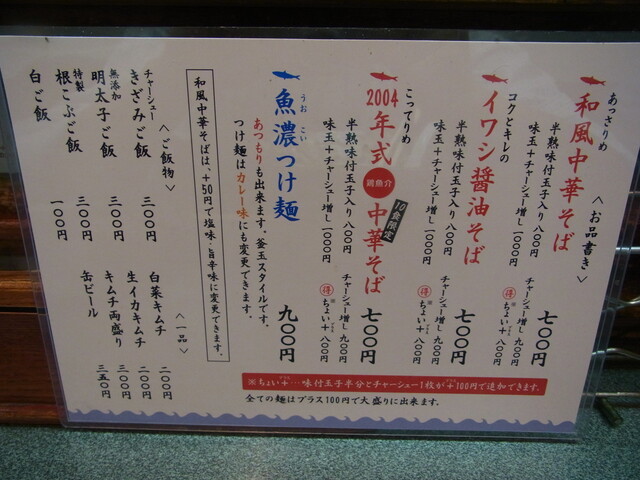 〈お品書き〉
あっさりめ
和風中華そば
七〇〇円
半熟味付玉子入り 八〇〇円
チャーシュー増し 九〇〇円
味玉+チャーシュー増し 一〇〇〇円
得 ※ちょい+ 八〇〇円
コクとキレの
イワシ醤油そば
七〇〇円
半熟味付玉子入り 八〇〇円
チャーシュー増し 九〇〇円
味玉+チャーシュー増し 一〇〇〇円
得 ※ちょい+ 八〇〇円
こってりめ
2004年式 鶏魚介 中華そば
10食限定
七〇〇円
半熟味付玉子入り 八〇〇円
チャーシュー増し 九〇〇円
味玉+チャーシュー増し 一〇〇〇円
得 ※ちょい+ 八〇〇円
うお こい
魚濃つけ麺
九〇〇円
あつもりも出来ます。釜玉スタイルです。
つけ麺はカレー味にも変更できます。
和風中華そばは、+50円で塩味・旨辛味に変更できます。
〈ご飯物〉
チャーシュー
きざみご飯 三〇〇円
無添加
明太子ご飯 三〇〇円
特製
根こぶご飯 三〇〇円
白ご飯 一〇〇円
〈一品〉
白菜キムチ 二〇〇円
生イカキムチ 二〇〇円
キムチ両盛り 三〇〇円
缶ビール 三五〇円
※ちょい+…味付玉子半分とチャーシュー1枚が+100円で追加できます。
全ての麺はプラス100円で大盛りに出来ます。